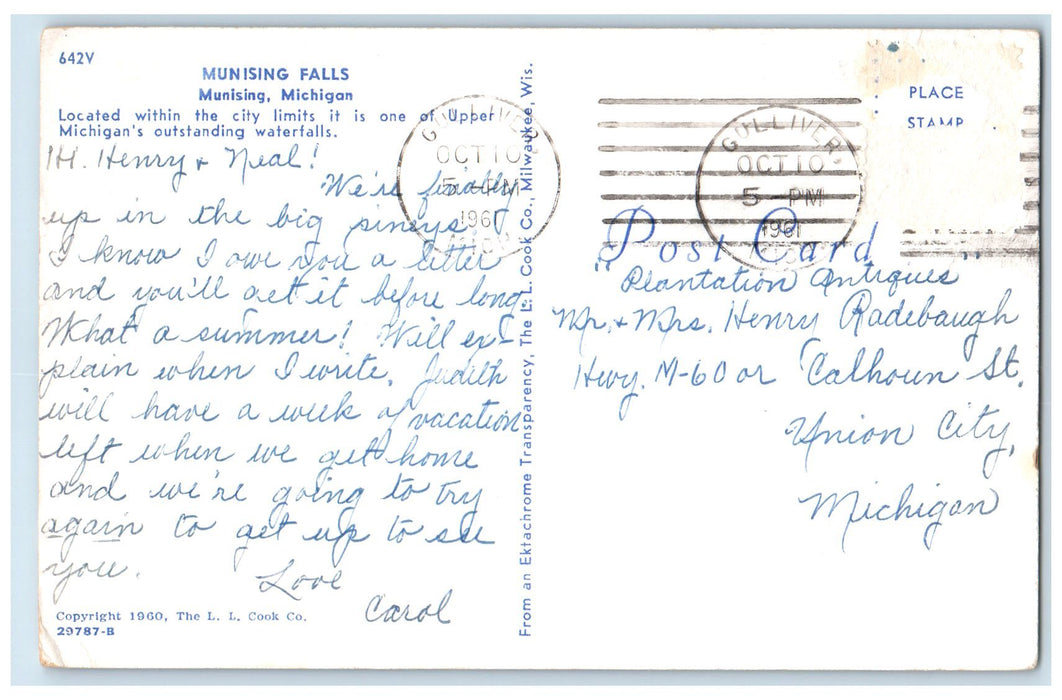 642V
MUNISING FALLS
Munising, Michigan
Located within the city limits it is one of Upper
Michigan's outstanding waterfalls.
Hi Henry & Neal!
We're finally
up in the big pineys
I know I owe you a letter
and you'll get it before long
What a summer! Will ex-
plain when I write. Judith
will have a week of vacation
left when we get home
and we're going to try
again to get up to see
you.
Love
Carol
Copyright 1960, The L. L. Cook Co.
29787-B
From an Ektachrome Transparency, The L. L. Cook Co., Milwaukee, Wis.
GULLIVER
OCT 10
5 PM
1961
MICH
GULLIVER
OCT 10
5 PM
1961
PLACE
STAMP
Post Card
"Plantation Antiques"
Mr. & Mrs. Henry Radebaugh
Hwy. M-60 or Calhoun St.
Union City,
Michigan